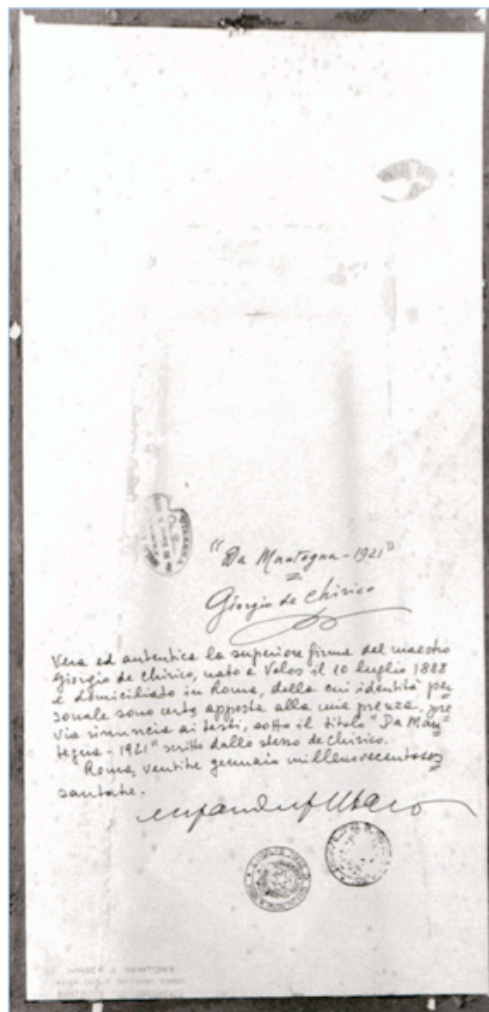 "Da Mantegna - 1921"
Giorgio de Chirico
Vera ed autentica la superiore firma del maestro
Giorgio de Chirico, nato a Volos il 10 luglio 1888
e domiciliato in Roma, della cui identità per=
sonale sono certo, apposta alla mia presenza, pre
via rinuncia ai testi, sotto il titolo "Da Man=
tegna - 1921" scritto dallo stesso de Chirico.
Roma, gennaio millenovecentoses
santa
WINSOR & NEWTONS